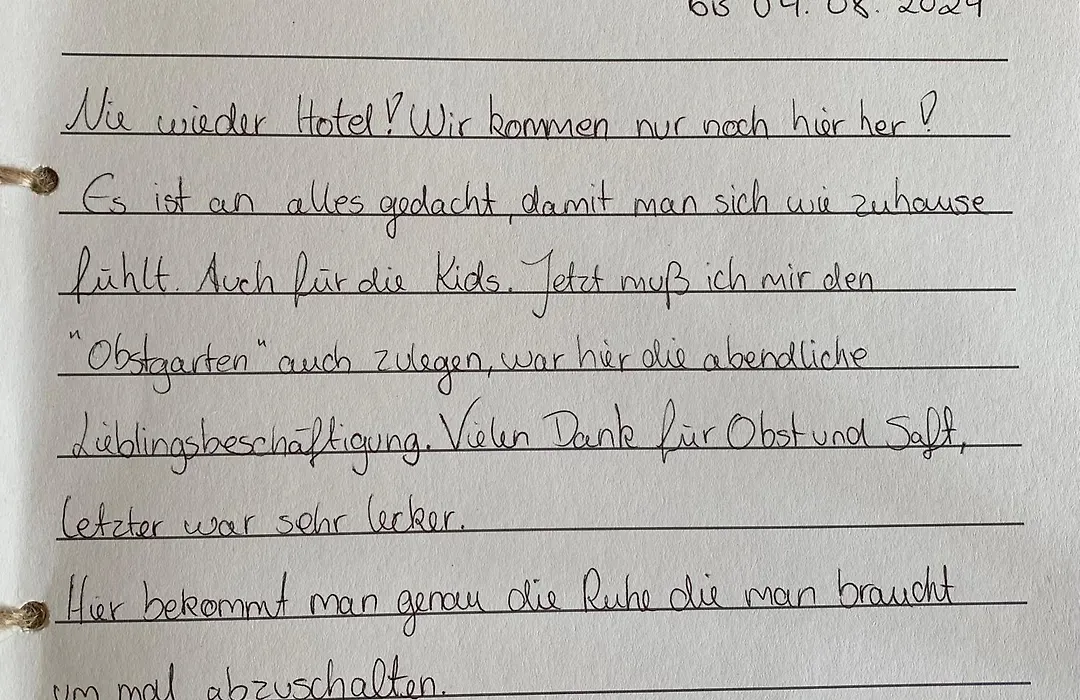 bis 04. 08. 2024
Nie wieder Hotel! Wir kommen nur noch hier her!
Es ist an alles gedacht, damit man sich wie zuhause
fühlt. Auch für die Kids. Jetzt muß ich mir den
"Obstgarten" auch zulegen, war hier die abendliche
Lieblingsbeschäftigung. Vielen Dank für Obst und Saft,
letzter war sehr lecker.
Hier bekommt man genau die Ruhe die man braucht
um mal abzuschalten.